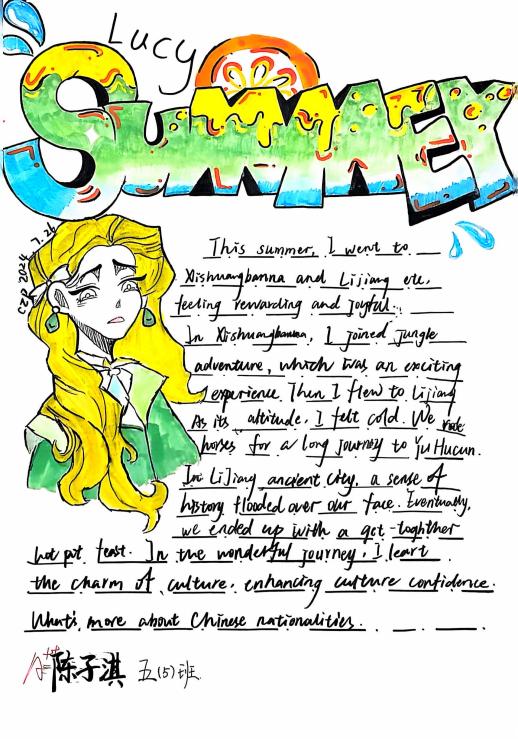 Lucy
SUMMER
CZQ 2024 7.26
This summer, I went to
Xishuangbanna and Lijiang etc,
feeling rewarding and joyful.
In Xishuangbanna, I joined jungle
adventure, which was an exciting
experience. Then I flew to Lijiang
As its altitude, I felt cold. We rode
horses for a long journey to Yu Hucun.
In LiJiang ancient city, a sense of
history flooded over our face. Eventually,
we ended up with a get-toghther
hot pot feast. In the wonderful journey, I leart
the charm of culture, enhancing culture confidence.
What's more about Chinese nationalities.
陈子淇 五(5)班